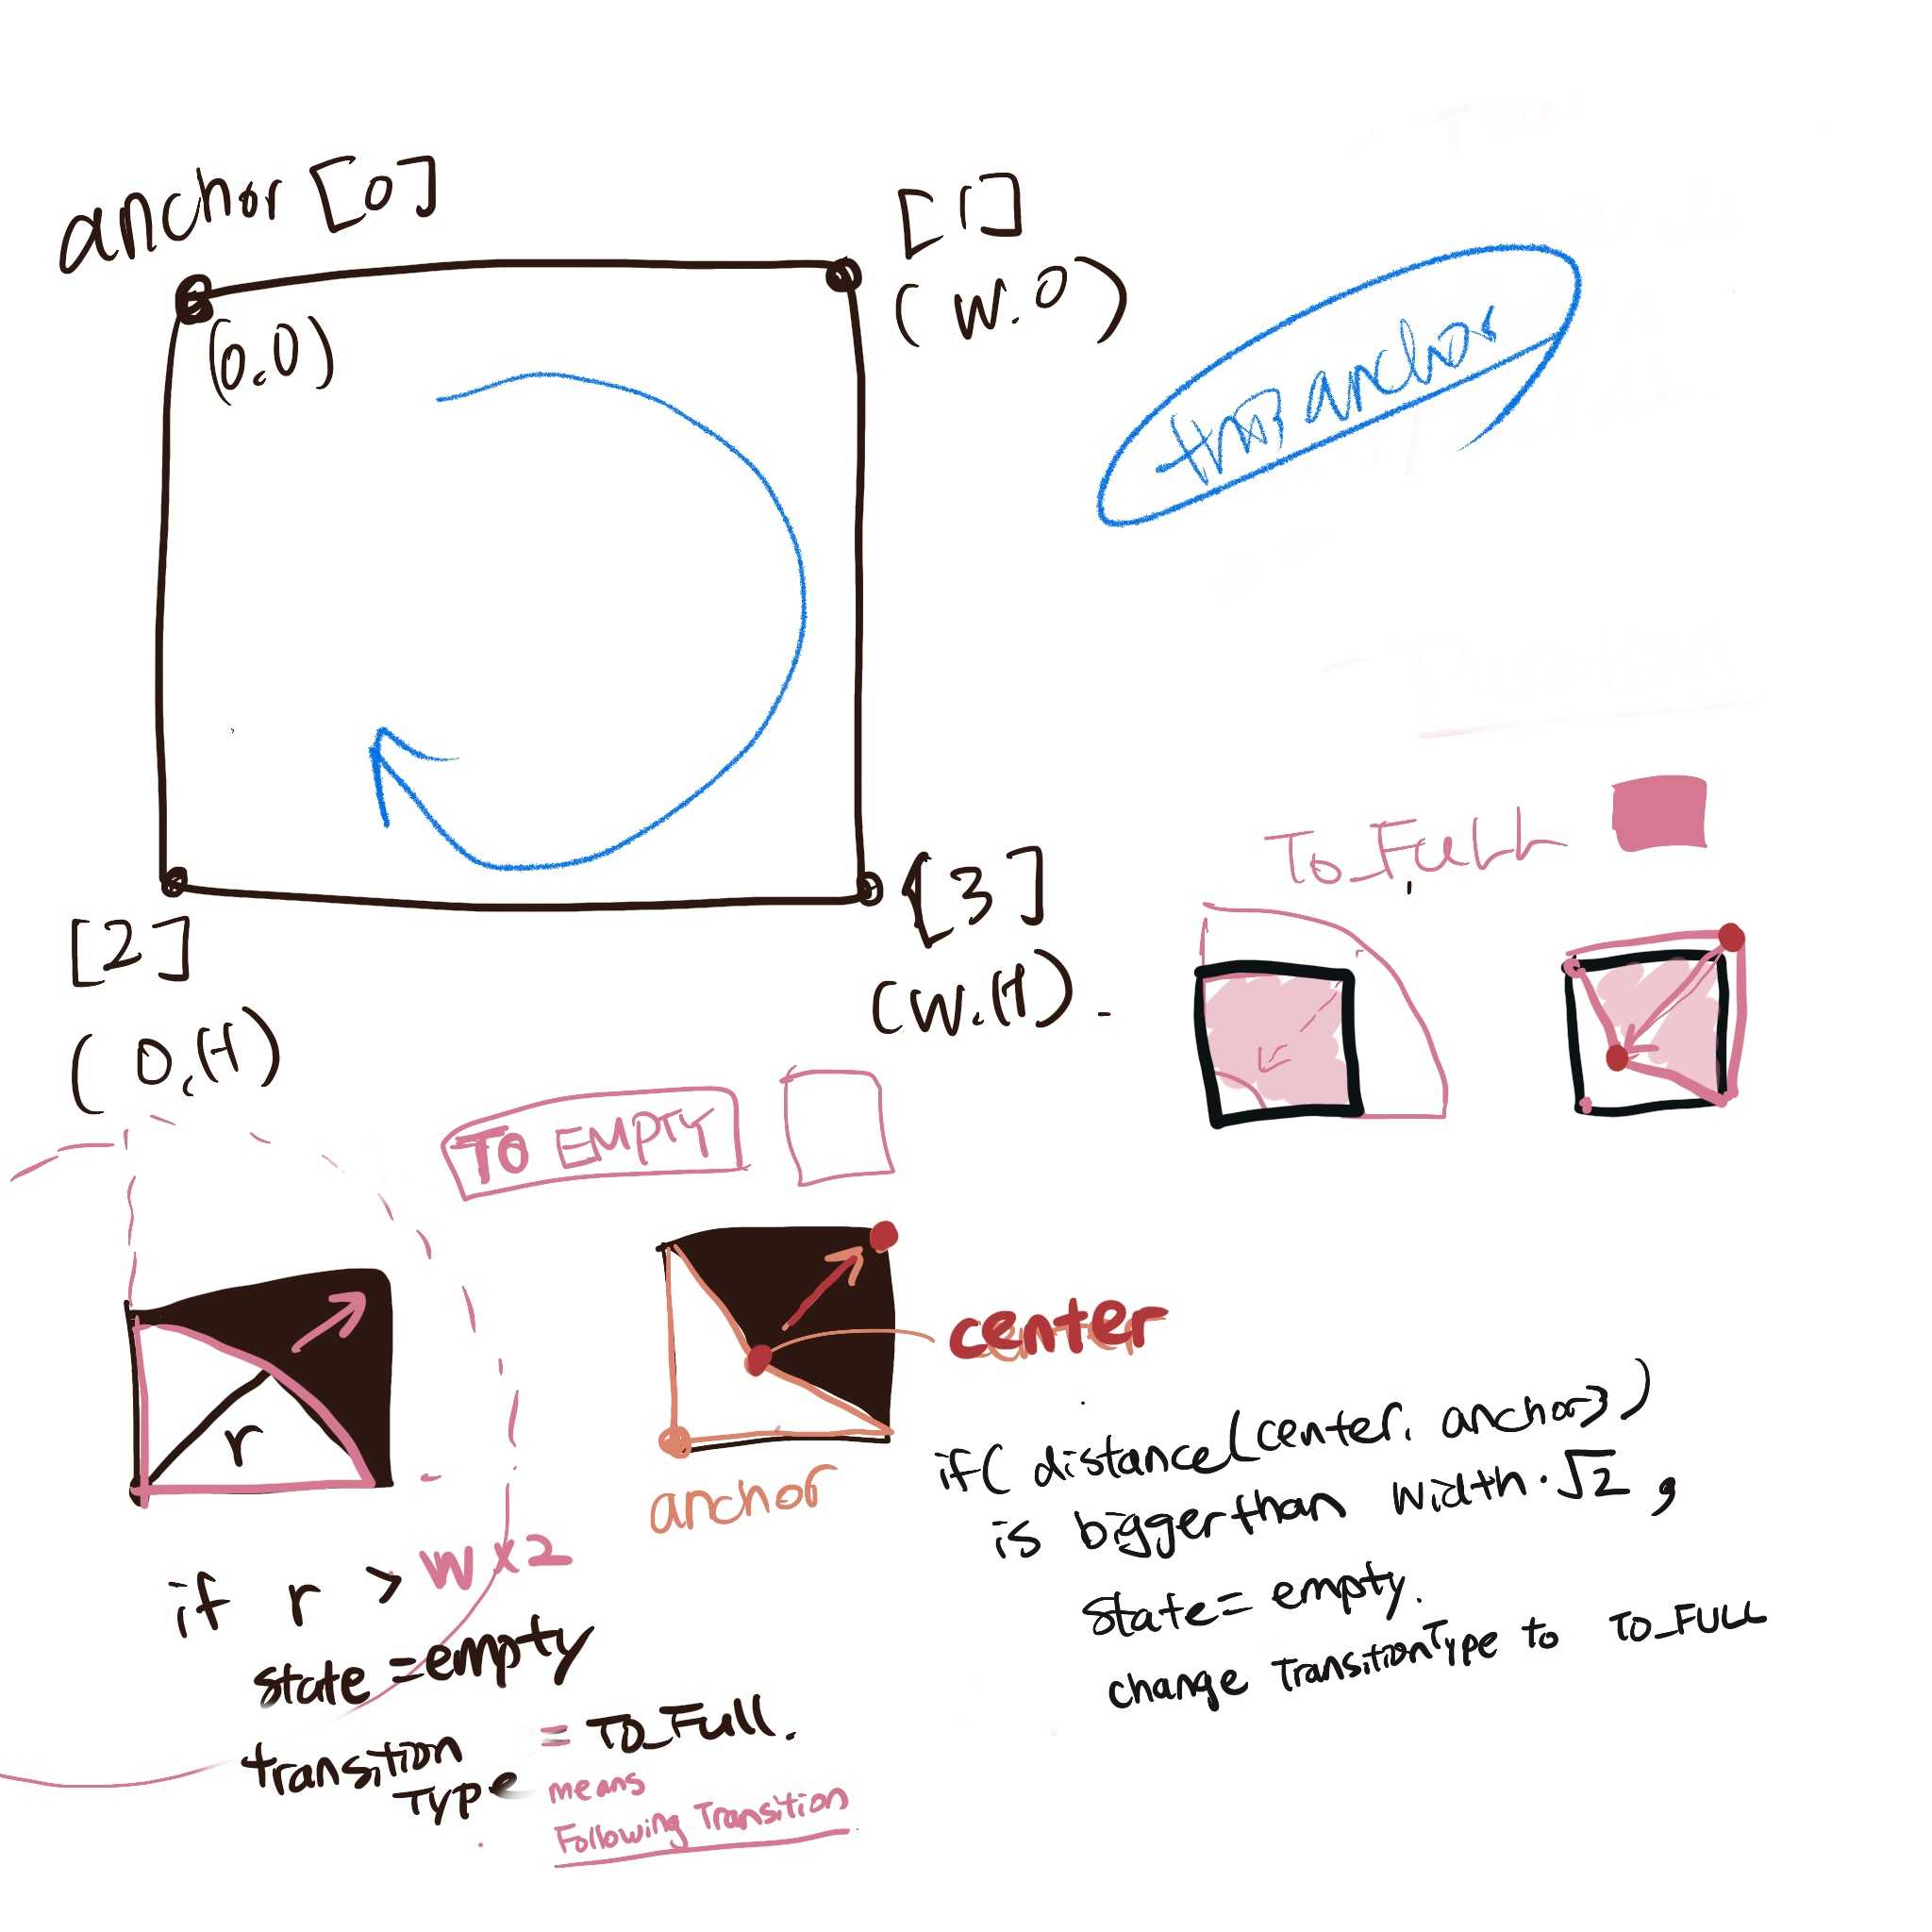 anchor [0]
(0.0)
[1]
(W.0)
anchor
[2]
(0,H)
[3]
(W.H).
TO_FULL
TO EMPTY
r
if r > W x 2
state = empty
transition Type = TO_FULL.
means
Following Transition
center
anchor
if( distance(center, anchor) )
is bigger than width·√2,
state = empty.
change TransitionType to TO_FULL